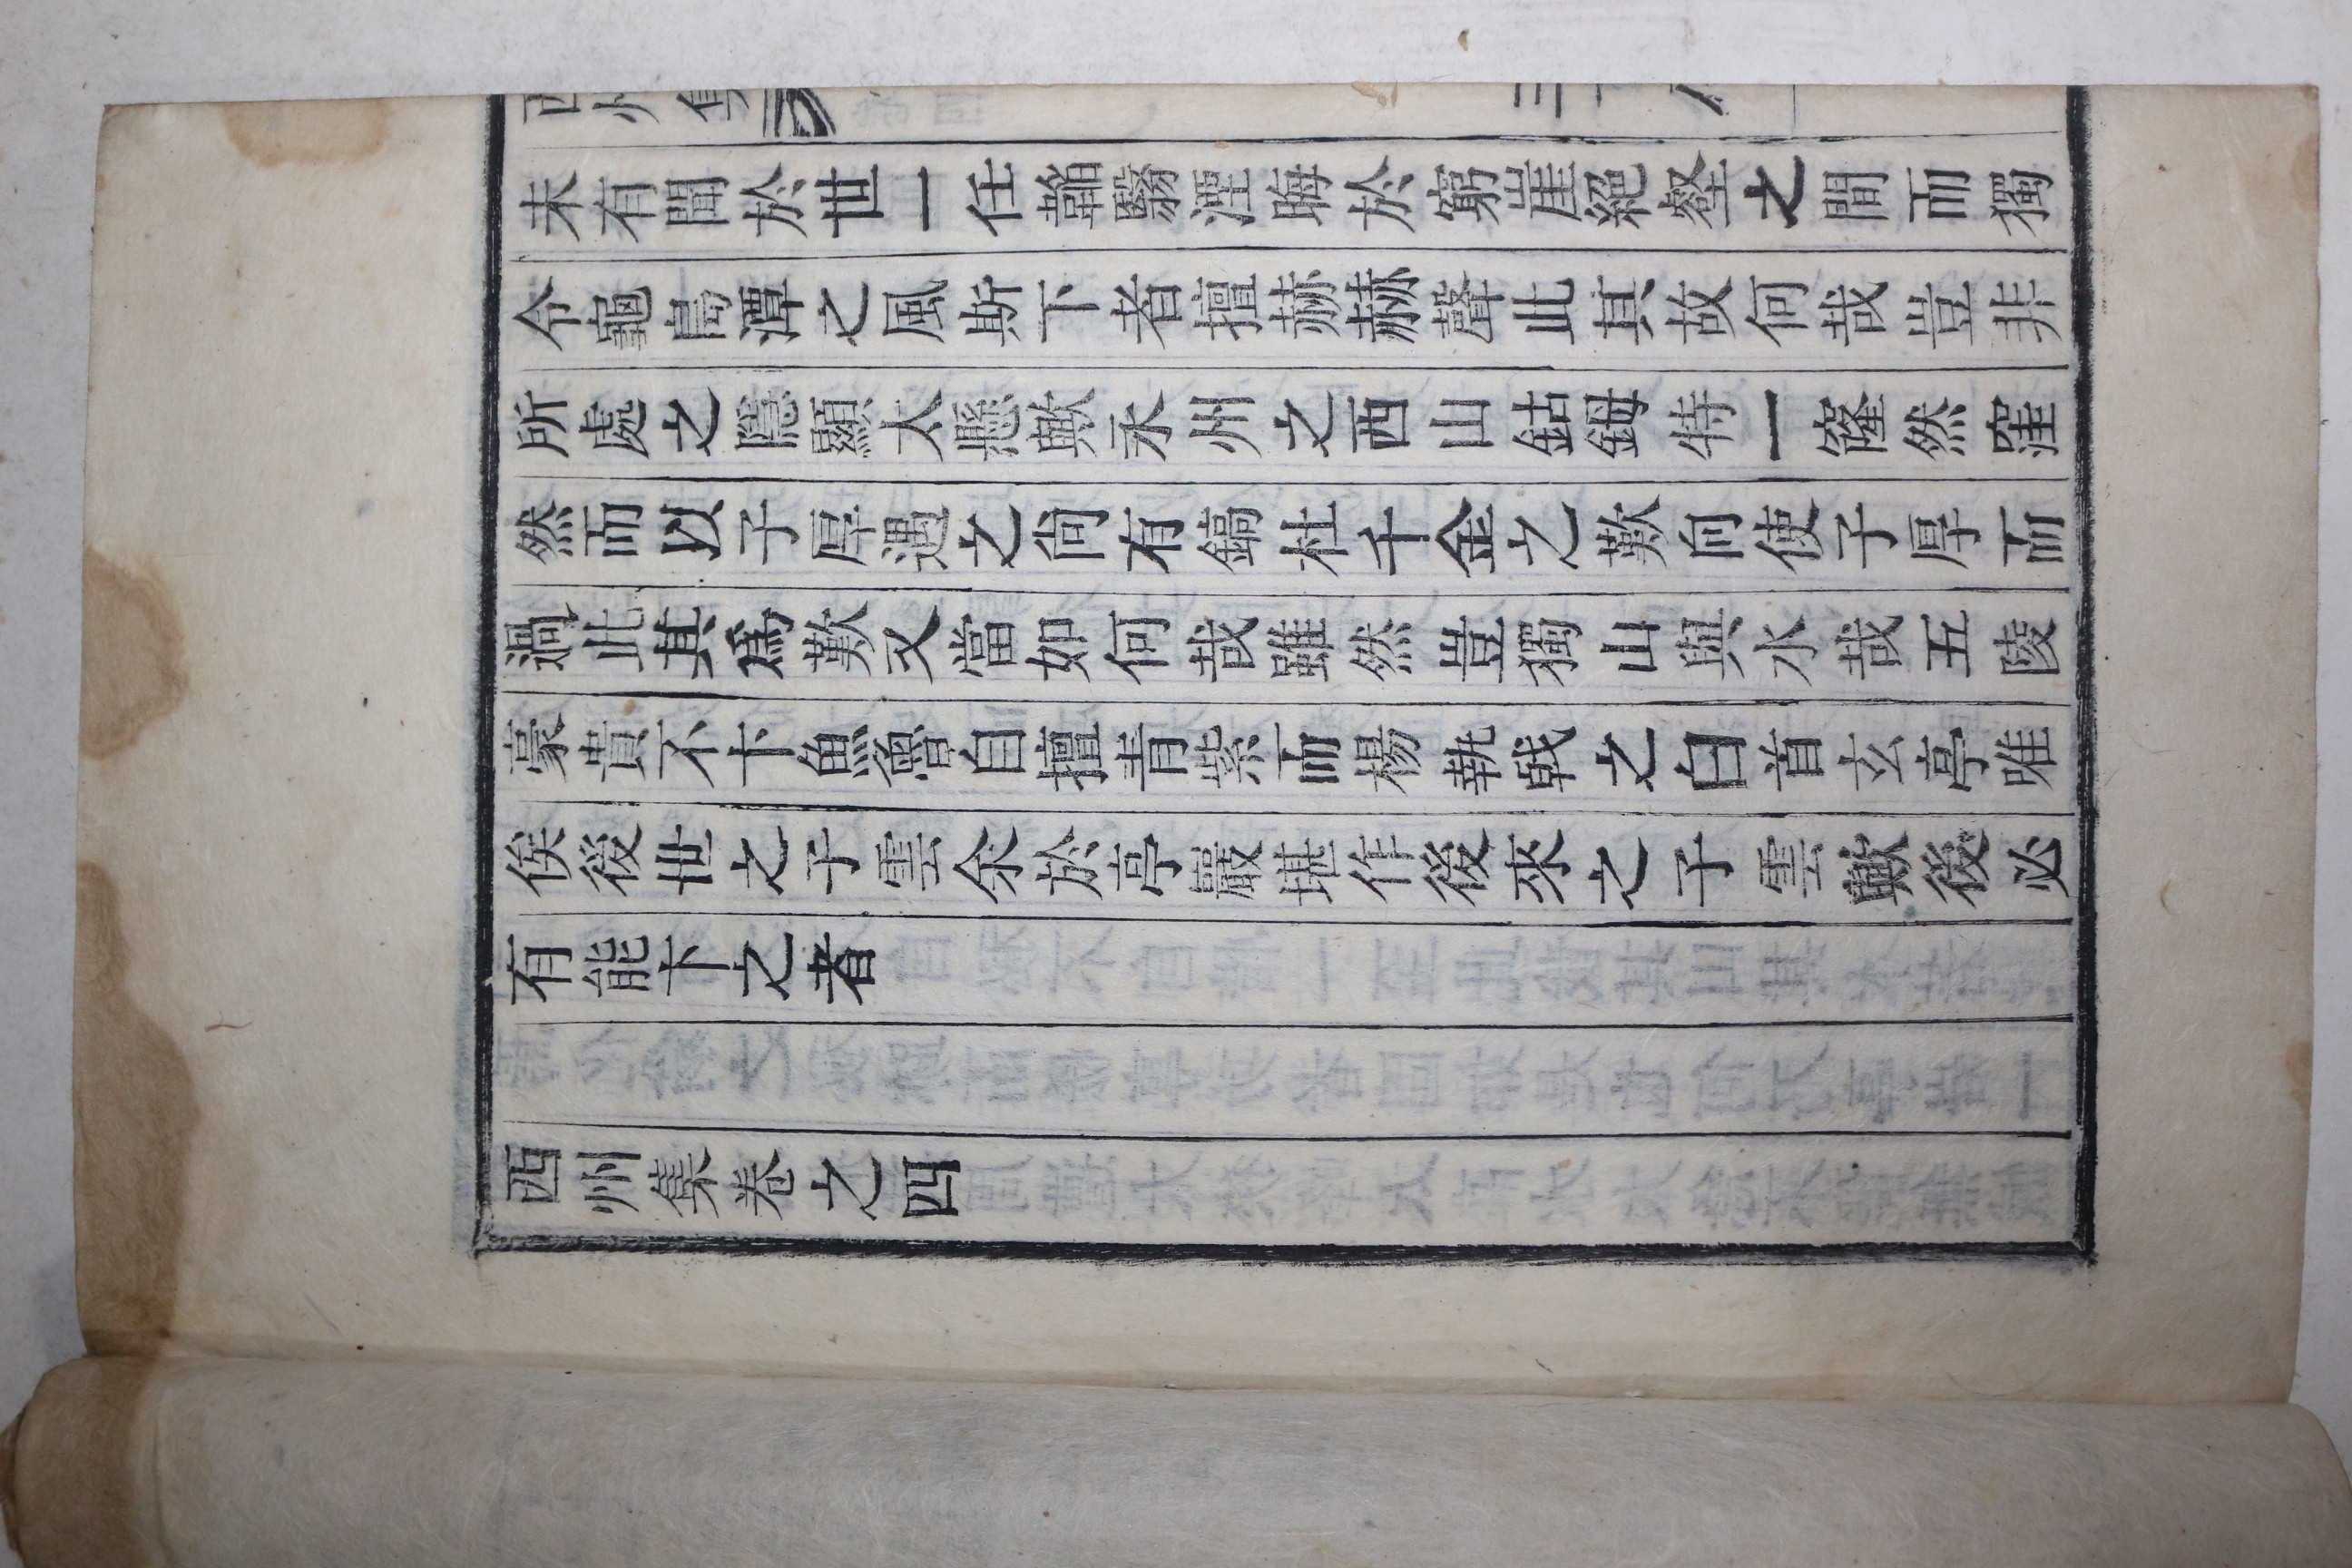 西州集
未有聞於世一任韜翳湮晦於窮崖絕壑之間而獨
令龜島潭之風斯下者擅赫赫聲此其故何哉豈非
所處之隱顯太懸歟永州之西山鈷鉧特一窿然窪
然而以子厚遇之尙有鎬杜千金之歎向使子厚而
過此其爲歎又當如何哉雖然豈獨山與水哉五陵
豪貴不卞魚魯自擅青紫而楊執戟之白首玄亭唯
俟後世之子雲余於亭巖堪作後來之子雲歟後必
有能卞之者
西州集卷之四